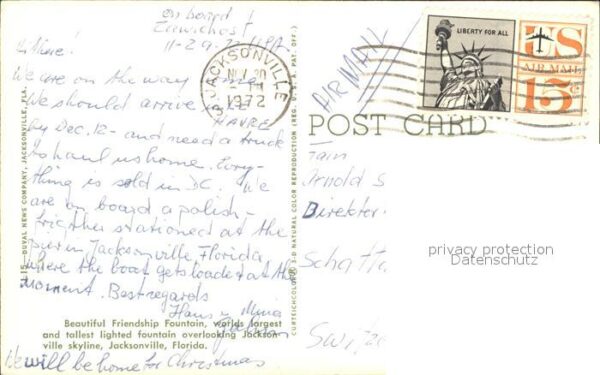 on board
11-29-
Hi there!
We are on the way home
We should arrive LE
HAVRE
by Dec. 12 - and need a truck
to haul us home. Every-
thing is sold in DC. We
are on board a polish-
frighter stationed at the
pier in Jacksonville, Florida
where the boat gets loaded at the
moment. Best regards
Hans
Beautiful Friendship Fountain, worlds largest
and tallest lighted fountain overlooking Jackson-
ville skyline, Jacksonville, Florida.
We will be home for Christmas
DUVAL NEWS COMPANY, JACKSONVILLE, FLA.
CURTEICHCOLOR 3-D NATURAL COLOR REPRODUCTION (REG. U.S. PAT. OFF.)
JACKSONVILLE
NOV 30
PM
1972
AIR MAIL
LIBERTY FOR ALL
US
AIR MAIL
15¢
POST CARD
Fam
Arnold S
Direktor
privacy protection
Datenschutz
Schaff
Switz